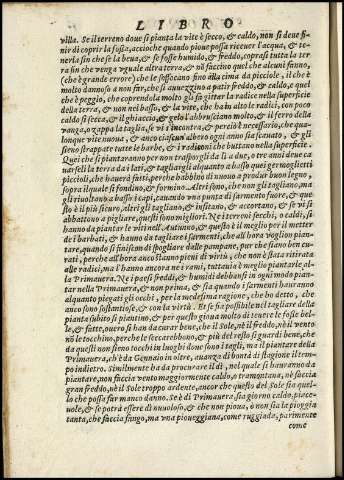 LIBRO
villa. Se il terreno doue si pianta la vite è secco, & caldo, non si deue fi-
nir di coprir la fossa, accioche quando pioue possa riceuer l'acqua, & te-
nerla fin che se la beua, & se fosse humido, & freddo, coprasi tutta la ter
ra fin che venga vguale all'altra terra, & nõ faccino quel che alcuni fanno,
(che è grande errore) che le soffocano fino alla cima da picciole, il che è
molto dannoso a non far, che si auuezzino a patir freddo, & caldo, e quel
che è peggio, che coprendola molto gli fa gittar la radice nella superficie
della terra, & non nel basso, & la vite, che ha in alto le radici, con poco
caldo si secca, e il ghiaccio, & gelo l'abbrusciano molto, & il ferro della
vanga, o zappa la taglia, se vi s'incontra, & perciò è necessario, che qua-
lonque vite nuoua, & anco ciascun'albero ogni anno sia scauato, & gli
sieno strappate tutte le barbe, & i radiconi che buttano nella superficie.
Quei che si piantaranno per non trasporgli da lì a due, o tre anni deue ca
uarseli la terra da i lati, & tagliargli alquanto a basso quei germoglietti
piccioli, che hauerà fatti, perche habbino di nuouo a produr buon legno,
sopra il quale si fondino, & formino. Altri sono, che non gli tagliano, ma
gli riuoltano a basso i capi, cauando vna punta di sarmento fuore, & que-
sto è il più sicuro, altri gli tagliano, & insitano, & accortano, & se vi si
abbattono a pigliare, questi sono migliori. Ne i terreni secchi, o caldi, si
hanno da piantar le viti nell'Autunno, & questo è il meglio per il metter
de i barbati, & hanno da tagliare i sarmenti, che all'hora voglion pian-
tare, quando si finiscono di spogliare dalle pampane, pur che siano ben cu-
rati, perche all'hora anco stanno pieni di virtù, che non s'è stata ritirata
alle radici, ma l'hanno ancora ne i rami, tuttauia è meglio piantarle al-
la Primauera. Ne i paesi freddi, & humidi debbansi in ogni modo pian-
tar nella Primauera, & non prima, & sia quando i sarmenti hauranno
alquanto piegati gli occhi, per la medesima ragione, che ho detto, che
anco sono sostantiose, & con la virtù. Et se sia possibile nel tagliare della
pianta subito si piantino, & per questo gioua molto di tenere le fosse bel-
le, & fatte, ouero si han da curar bene, che il Sole, nè il freddo, nè il vento
nõ le tocchino, perche le seccarebbono, & più del resto si guardi bene, che
da questi non sieno tocchi in luoghi doue sono i tagli, ma il piantar della
Primauera, ch'è da Gennaio in oltre, auanza di bontà di stagione il tem-
po indietro. Similmente ha da procurare il dì, nel quale si hauranno da
piantare, non faccia vento maggiormente caldo, o tramontana, nè faccia
gran freddo, nè il Sole troppo ardente, ancor che questo del Sole sia quel-
lo che possa far manco danno. Se è di Primauera, sia giorno caldo, piace-
uole, & se potrà essere di nuuolo, & che non pioua, ò non sia la pioggia
tanta, che faccia fango, ma vna pioueggiana, come ruggiada, parimente
come